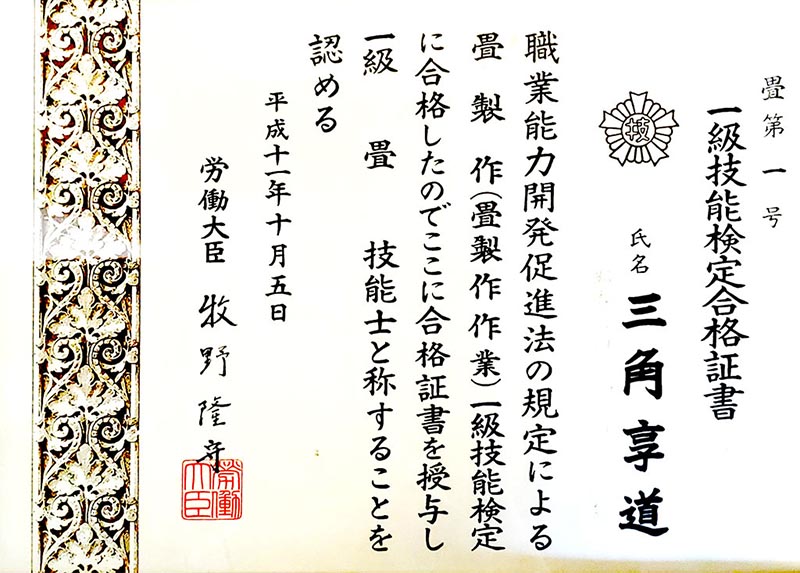 畳第一号
一級技能検定合格証書
技
氏名 三角享道
職業能力開発促進法の規定による
畳製作(畳製作作業)一級技能検定
に合格したのでここに合格証書を授与し
一級 畳 技能士と称することを
認める
平成十一年十月五日
労働大臣 牧野隆守
労働大臣